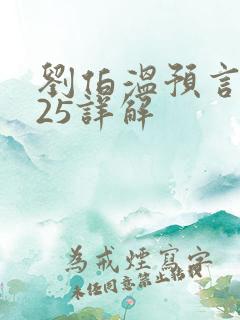 劉伯溫預言
25詳解
為戒煙寫字
未經同意禁止轉載